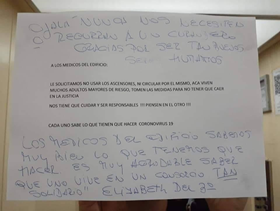 OJALÁ NUNCA NOS NECESITEN
O RECURRAN A UN CURANDERO
GRACIAS POR SER TAN BUENOS
SERES HUMANOS
A LOS MEDICOS DEL EDIFICIO:
LE SOLICITAMOS NO USAR LOS ASCENSORES, NI CIRCULAR POR EL MISMO, ACA VIVEN
MUCHOS ADULTOS MAYORES DE RIESGO, TOMEN LAS MEDIDAS PARA NO TENER QUE CAER
EN LA JUSTICIA
NOS TIENE QUE CUIDAR Y SER RESPONSABLES !!! PIENSEN EN EL OTRO !!!
CADA UNO SABE LO QUE TIENEN QUE HACER CORONOVIRUS 19
LOS "MEDICOS DEL EDIFICIO SABEMOS
MUY BIEN LO QUE TENEMOS QUE
HACER. ES MUY AGRADABLE SABER
QUE UNO VIVE EN UN CONSORCIO TAN
SOLIDARIO" ELIZABETH DEL